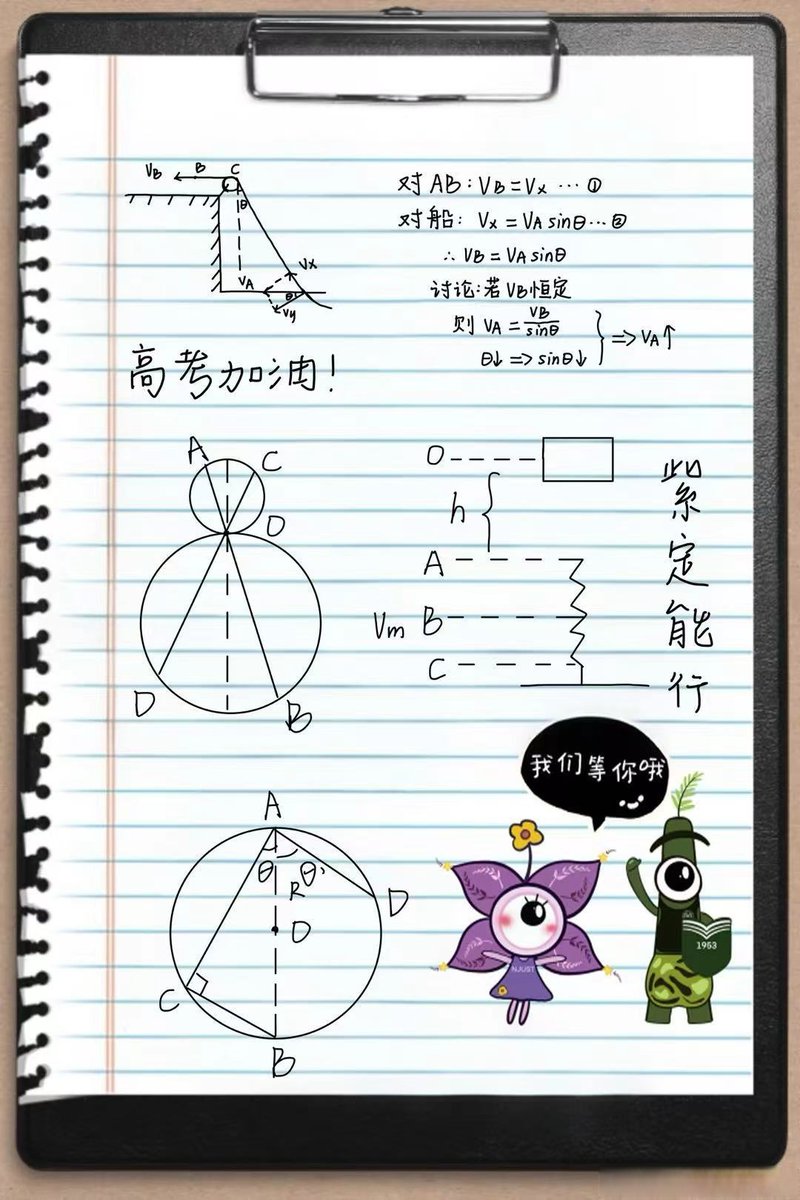 VB B C
θ
VA Vx
θ
Vy
对 AB: VB = Vx … ①
对船: Vx = VA sinθ … ②
∴ VB = VA sinθ
讨论: 若 VB 恒定
则 VA = VB/sinθ
θ↓ => sinθ↓ } => VA↑
高考加油!
A C
O
D
B
O
h
A
Vm B
C
紫定能行
我们等你哦
A
θ θ'
R
O
D
C
B
NJUST
1953